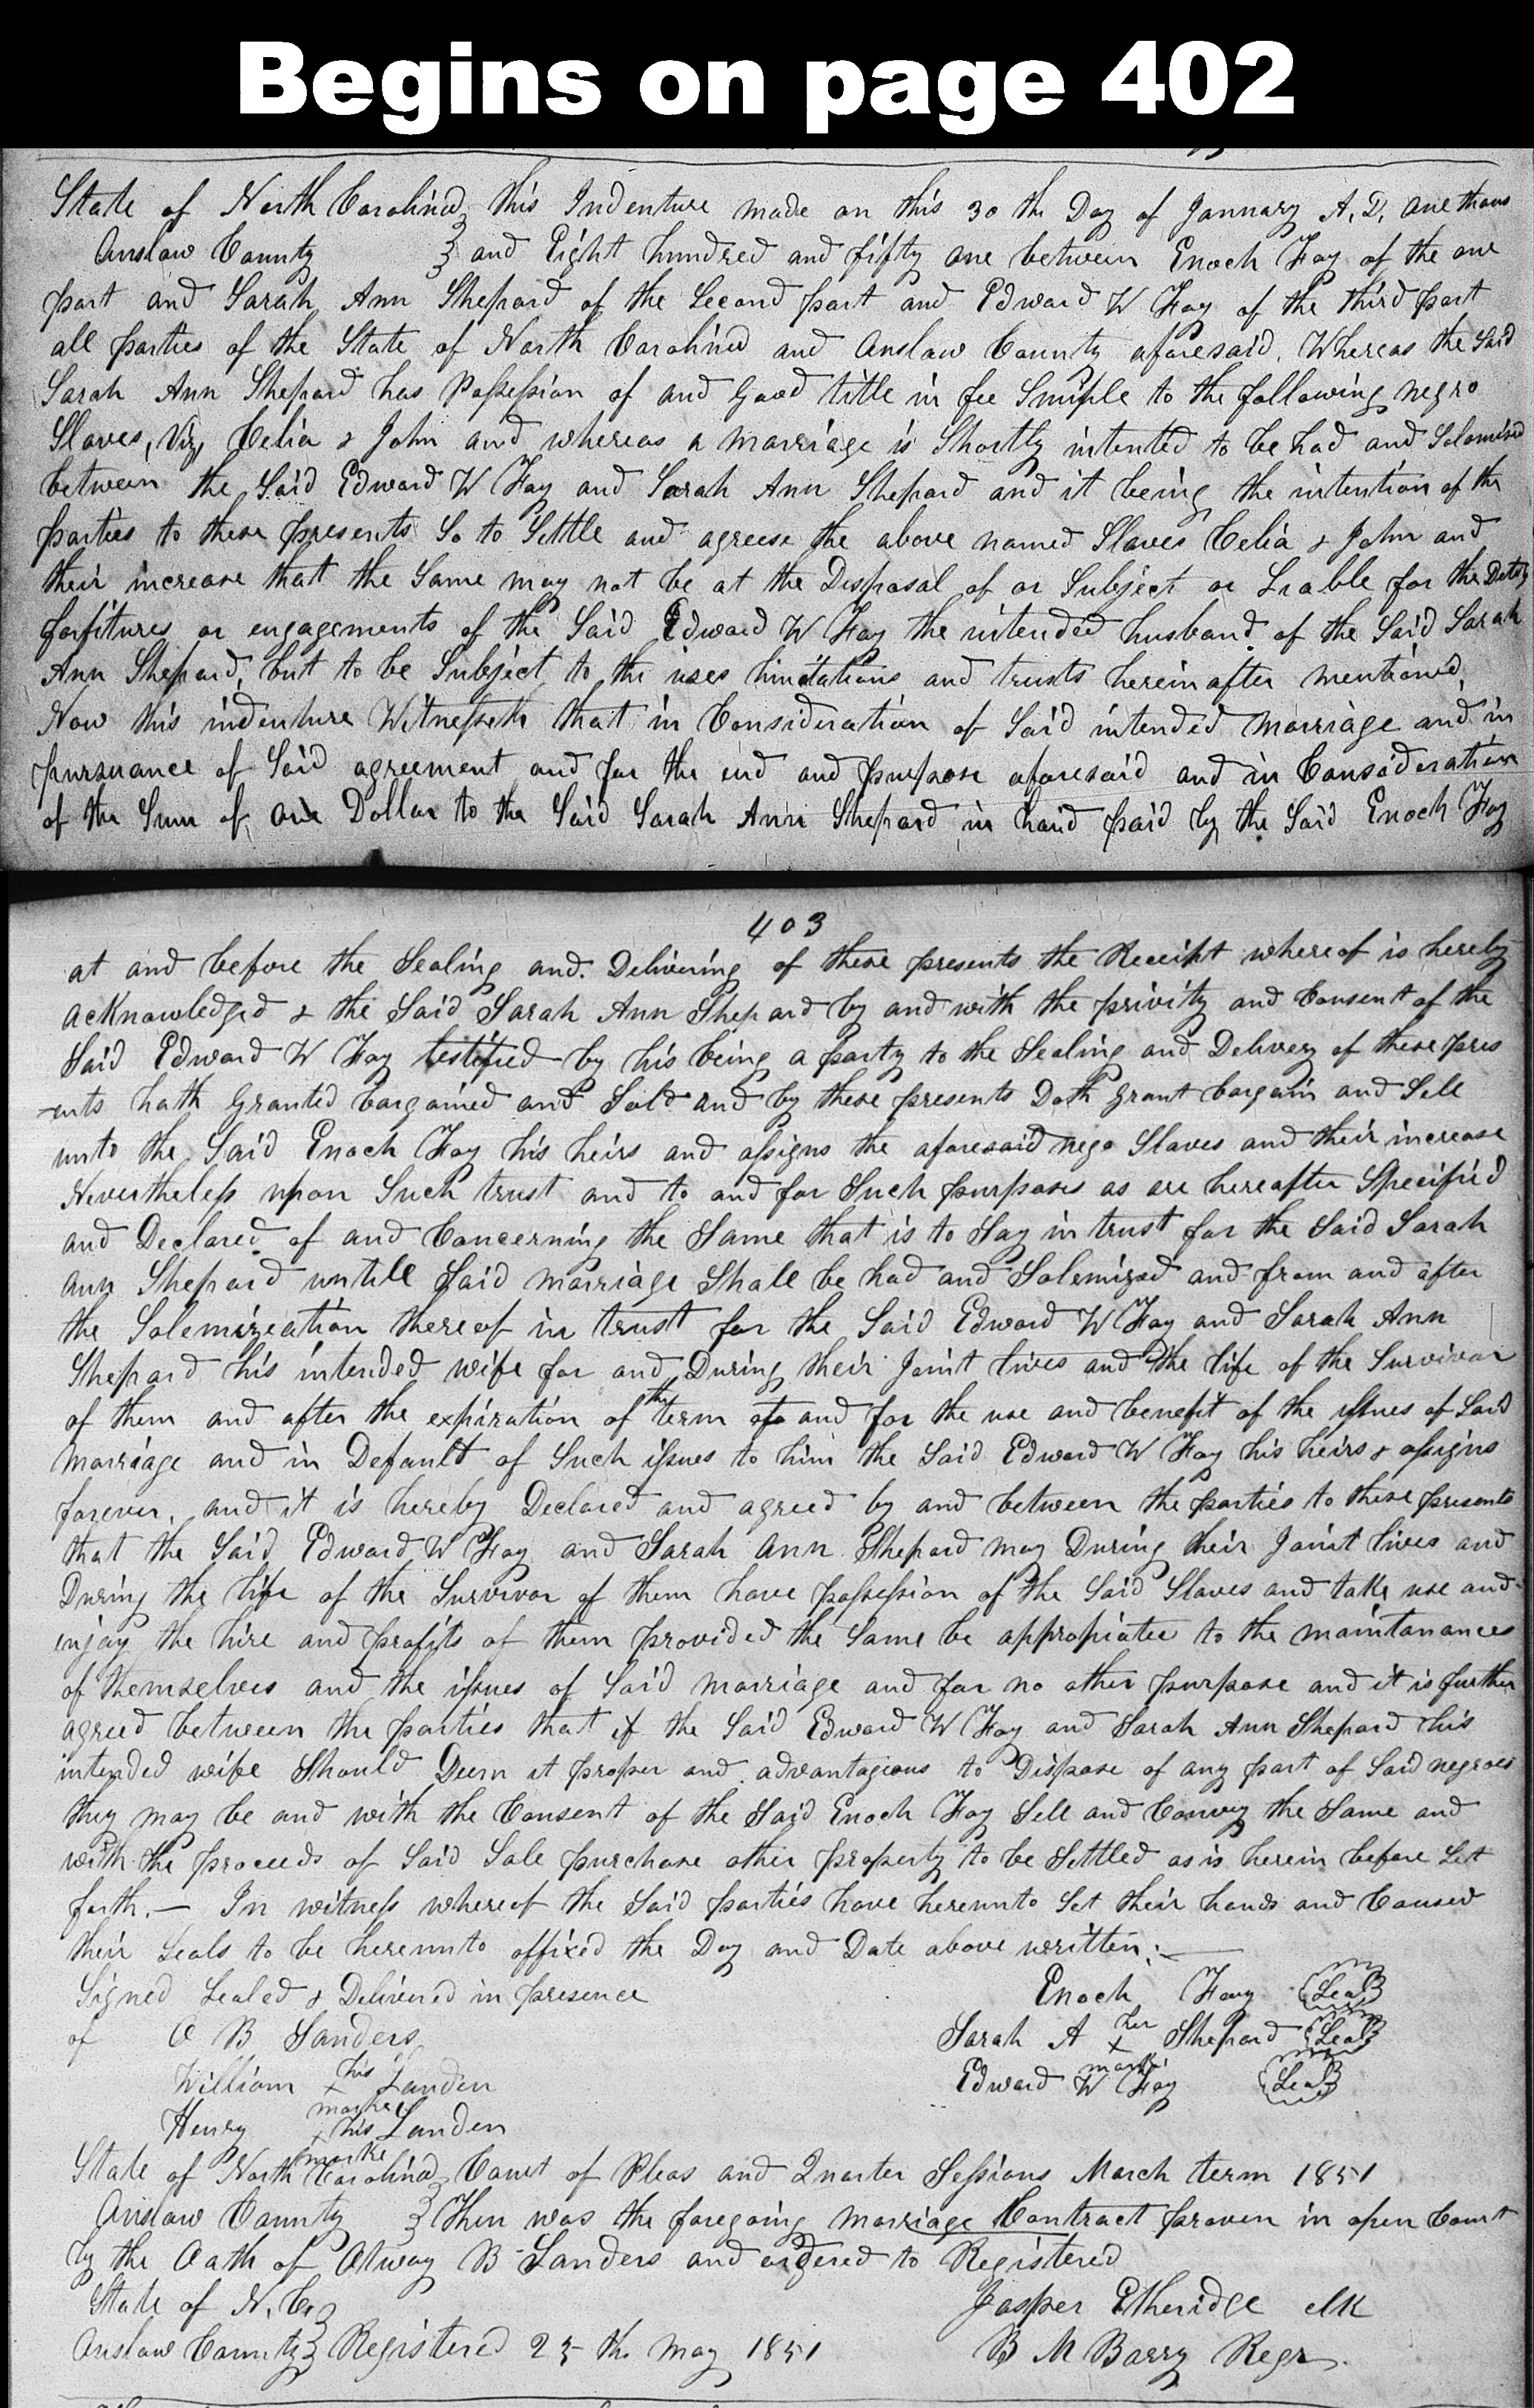 Begins on page 402
State of North Carolina } this Indenture made on this 30 th Day of January A, D, one thous
Onslow County } and Eight hundred and fifty one between Enoch Foy of the one
part and Sarah Ann Shepard of the Second part and Edward W Foy of the third part
all parties of the State of North Carolina and Onslow County aforesaid. Whereas the Said
Sarah Ann Shepard has Possession of and Good title in fee Simple to the following negro
Slaves, Viz, Celia & John and whereas a marriage is Shortly intented to be had and Solomised
between the Said Edward W Foy and Sarah Ann Shepard and it being the intention of the
parties to these presents So to Settle and agreese the above named Slaves Celia & John and
their increase that the Same may not be at the Disposal of or Subject or Liable for the Detts
forfitures or engagements of the Said Edward W Foy the intended husband of the Said Sarah
Ann Shepard, but to be Subject to the uses limitations and trusts herein after mentioned,
Now this indenture Witnesseth that in Consideration of Said intended marriage and in
pursuance of Said agreement and for the end and purpose aforesaid and in Consideration
of the Sum of one Dollar to the Said Sarah Ann Shepard in hand paid by the Said Enoch Foy
403
at and before the Sealing and Delivering of these presents the Receipt whereof is hereby
acknowledged & the Said Sarah Ann Shepard by and with the privity and Consent of the
Said Edward W Foy testified by his being a party to the Sealing and Delivery of these pres
-ents hath Granted bargained and Sold and by these presents Doth grant bargain and Sell
unto the Said Enoch Foy his heirs and assigns the aforesaid nego Slaves and their increase
Nevertheless upon Such trust and to and for Such purposes as are hereafter Specified
and Declared of and Concerning the Same that is to Say in trust for the Said Sarah
Ann Shepard untill Said marriage Shall be had and Solemized and from and after
the Solemization thereof in trust for the Said Edward W Foy and Sarah Ann
Shepard his intended wife for and During their Joint lives and the life of the Survivor
of them and after the expiration of the term to and for the use and benefit of the issues of Said
marriage and in Default of Such issues to him the Said Edward W Foy his heirs & assigns
forever, and it is hereby Declared and agreed by and between the parties to these presents
that the Said Edward W Foy and Sarah Ann Shepard may During their Joint lives and
During the life of the Survivor of them have possession of the Said Slaves and take use and
enjoy the hire and profits of them provided the Same be appropiatee to the maintanances
of themselves and the issues of Said marriage and for no other purpose and it is further
agreed between the parties that if the Said Edward W Foy and Sarah Ann Shepard his
intended wife Should Deem it proper and advantagious to Dispose of any part of Said negroes
they may be and with the Consent of the Said Enoch Foy Sell and Convey the Same and
with the proceeds of Said Sale purchase other property to be Settled as is herein before Set
forth.— In witness whereof the Said parties have hereunto Set their hands and Caused
their Seals to be hereunto affixed the Day and Date above written:—
Signed Sealed & Delivered in presence Enoch Foy (Seal)
of O B Sanders Sarah A her x mark Shepard (Seal)
William his x marke Landen Edward W Foy (Seal)
Henry his x marke Landen
State of North Carolina } Court of Pleas and Quarter Sessions March term 1851
Onslow County } Then was the foregoing marriage Contract proven in open Court
by the Oath of Otway B Sanders and ordered to Registered
State of N. C. } Jasper Etheridge clk
Onslow County } Registered 25 th May 1851 B M Barry Regr.